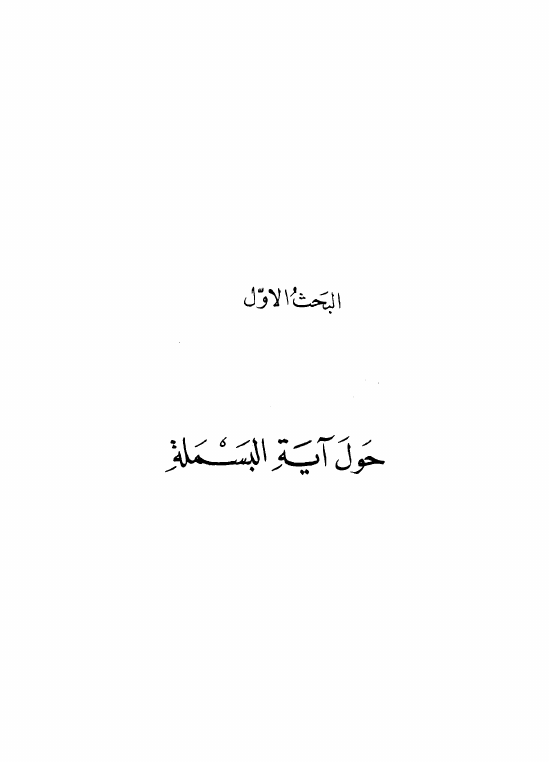 البَحثُ الاوّل
حَولَ آيَةِ البَسْمَلَةِ